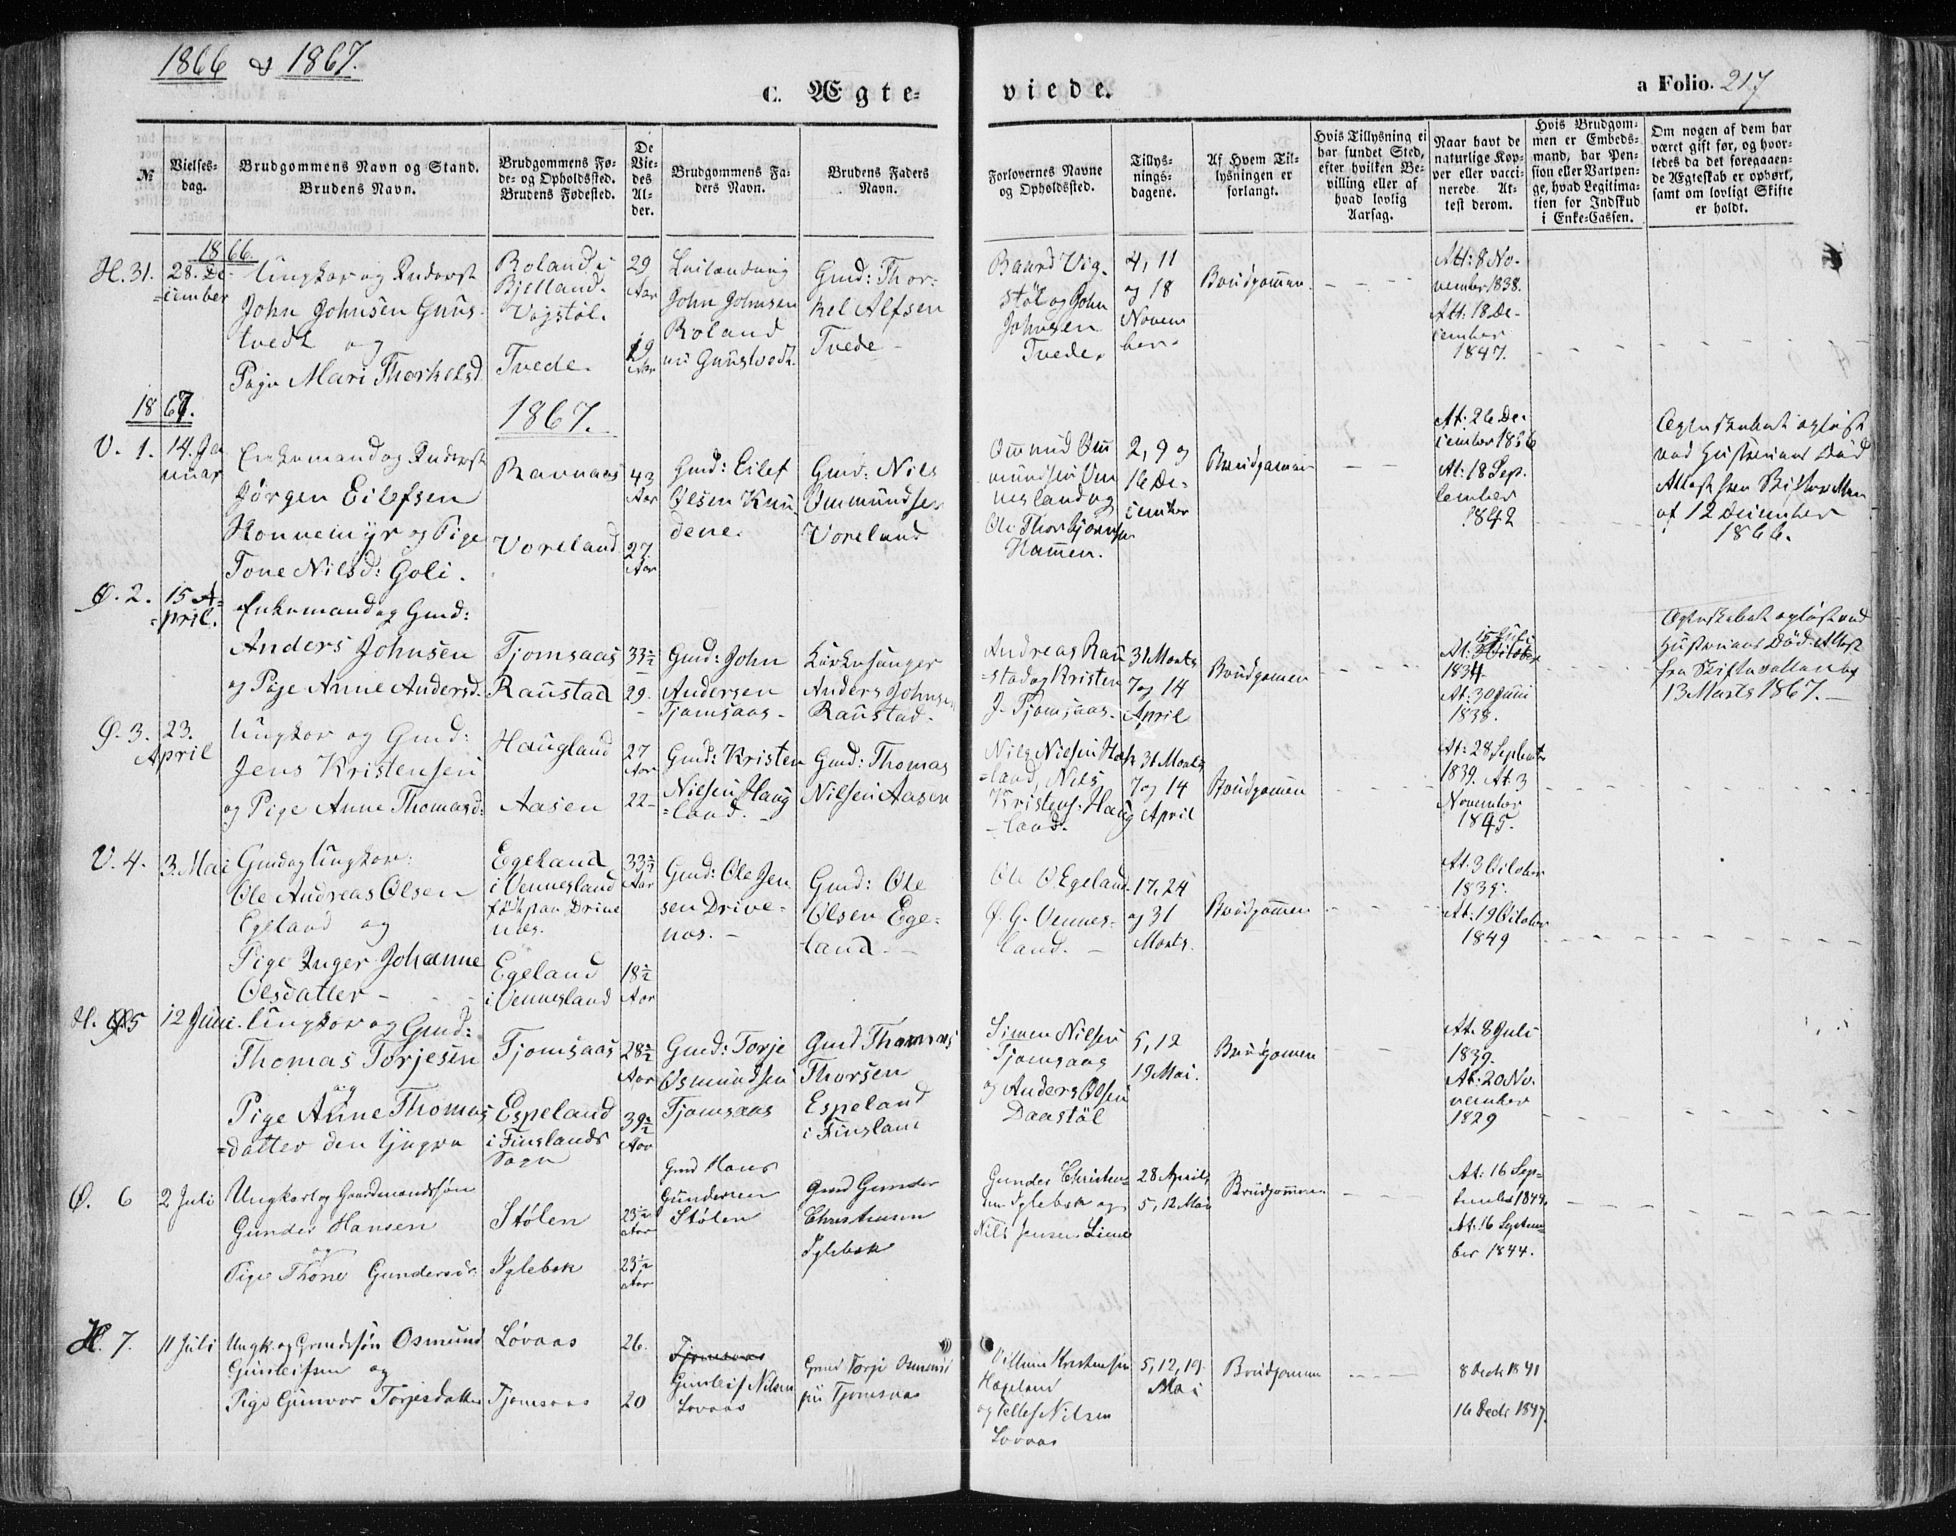 1866 & 1867.
C. Ægte- viede.
a Folio. 217
№
Vielses-
dag.
Brudgommens Navn og Stand.
Brudens Navn.
Brudgommens Fø-
de- og Opholdssted.
Brudens Fødested.
De
Vie-
des
Al-
der.
Brudgommens Fa-
ders Navn.
Brudens Faders
Navn.
Forlovernes Navne
og Opholdssted.
Tillys-
nings-
dagene.
Af Hvem Til-
lysningen er
forlangt.
Hvis Tillysning ei
har fundet Sted,
efter hvilken Be-
villing eller af
hvad lovlig
Aarsag.
Naar havt de
naturlige Kop-
per eller vacci-
nerede. At-
test derom.
Hvis Brudgom-
men er Embeds-
mand, har Pen-
sion eller Vartpen-
ge, hvad Legitima-
tion for Indskud
i Enke-Cassen.
Om nogen af dem har
været gift før, og hvor-
ledes da det foregaaen-
de Ægteskab er ophørt,
samt om lovligt Skifte
er holdt.
1866.
H. 31.
28. De-
cember
Ungkar og Inderst
John Johnsen Guns-
tvedt og
Pige Mari Thorkelsd
Roland i
Bjelland.
Vigstøl.
Tvede.
29
Aar
19
Aar
John Johnsen
Roland
Gmd: Thor-
kel Alfsen
Tvede
Baard Vig-
støl og John
Johnsen
Tvede.
4, 11
og 18
Novem
ber.
Brudgommen
Att: 8 No-
vember 1838.
Att: 18 De-
cember
1847.
1867.
1867.
V. 1.
14. Ja
nuar
Enkemand og Inderst
Jørgen Eilefsen
Honnemyr og Pige
Tone Nilsd: Goli.
Ravnaas
Voreland
43
Aar
27
Aar
Gmd: Eilef
Olsen Kun
dene.
Gmd: Nils
Ommundsen
Voreland
Ommund Om
mundsen Ven
nesland og
Ole Thorbjørnsen
Hammen.
2, 9 og
16 De-
cember
Brudgommen
At: 26 De-
cember 1856
At: 18 Sep-
tember
1842
Ægteskabet opløst
ved Hustruens Død
Attest fra Skifteretten
af 12 December
1866.
Ø. 2.
15 A-
pril.
Enkemand og Gmd:
Anders Johnsen
og Pige Anne Andersd.
Tjomsaas
Raustad
33½
29.
Gmd: John
Andersen
Tjomsaas
Kirkesanger
Anders Johnsen
Raustad.
Andreas Rau
stad og Kristen
J. Tjomsaas.
31 Marts
7 og 14
April
Brudgommen
15 Juli
1834
At: 30 Juni
1838.
Ægteskabet opløst ved
Hustruens Død. Attest
fra Skifteretten af
13 Marts 1867.
Ø. 3.
23.
April
Ungkar og Gmd:
Jens Kristensen
og Pige Anne Thomasd:
Haugland
Aasen
27
Aar
22
Gmd: Kristen
Nilsen Haug
=land.
Gmd: Thomas
Nilsen Aasen
Nils Nilsen
=land, Nils
Kristens. Haug
=land.
31 Marts
7 og 14
April
Brudgommen
At: 28 September
1839. At: 3
November
1845.
V. 4.
3. Mai
Gmd og Ungkar:
Ole Andreas Olsen
Egeland og
Pige Inger Johanne
Olsdatter
Egeland
i Vennesland
født paa Drive
nes.
Egeland
i Vennesland
33½
Aar
18½
Aar
Gmd: Ole Jen
sen Drive-
nes.
Gmd: Ole
Olsen Ege-
land.
Ole O. Egeland.
Ø. G. Vennes-
land.
17, 24
og 31
Marts.
Brudgommen
At: 3 October
1835.
At: 19 October
1849
H. 5
12 Juni
Ungkar og Gmd:
Thomas Torjesen
og
Pige Anne Thomas
=datter den yngre
Tjomsaas
Espeland
i Finslands
Sogn
28½
Aar
39½
Aar
Gmd: Torje
Osmundsen
Tjomsaas
Gmd Thomas
Thorsen
Espeland
i Finsland
Simen Nilsen
Tjomsaas
og Anders Olsen
Daastøl
5, 12
19 Mai.
Brudgommen
At: 8 Juli
1839.
At: 20 No-
vember
1829
Ø. 6
2 Juli
Ungkarl og Gaardmandssøn
Gunder Hansen
og
Pige Thone Gundersdr.
Stølen
Iglebæk
23½
Aar
23½
Aar
Gmd Hans
Gundersen
Stølen
Gmd Gunder
Christensen
Iglebæk
Gunder Christen-
sen Iglebæk og
Nils Jensen Lien
28 April
5, 12 Mai
Brudgommen
At: 16 Sep-
tember 1844.
At: 16 Septem-
ber 1844.
H. 7.
11 Juli
Ungk. og Gmdssøn Osmund
Gunleifsen og
Pige Gunvor Torjesdatter
Løvaas
Tjomsaas
26.
20
Tjomsaas
Gunleif Nilsen
Lovaas
Gmd Torje Osmund
sen Tjomsaas
Villum Kristensen
Hægeland
og Tellef Nilsen
Lovaas
5, 12, 19
Mai
Brudgommen
8 Decbr 1841
16 Decbr 1847.